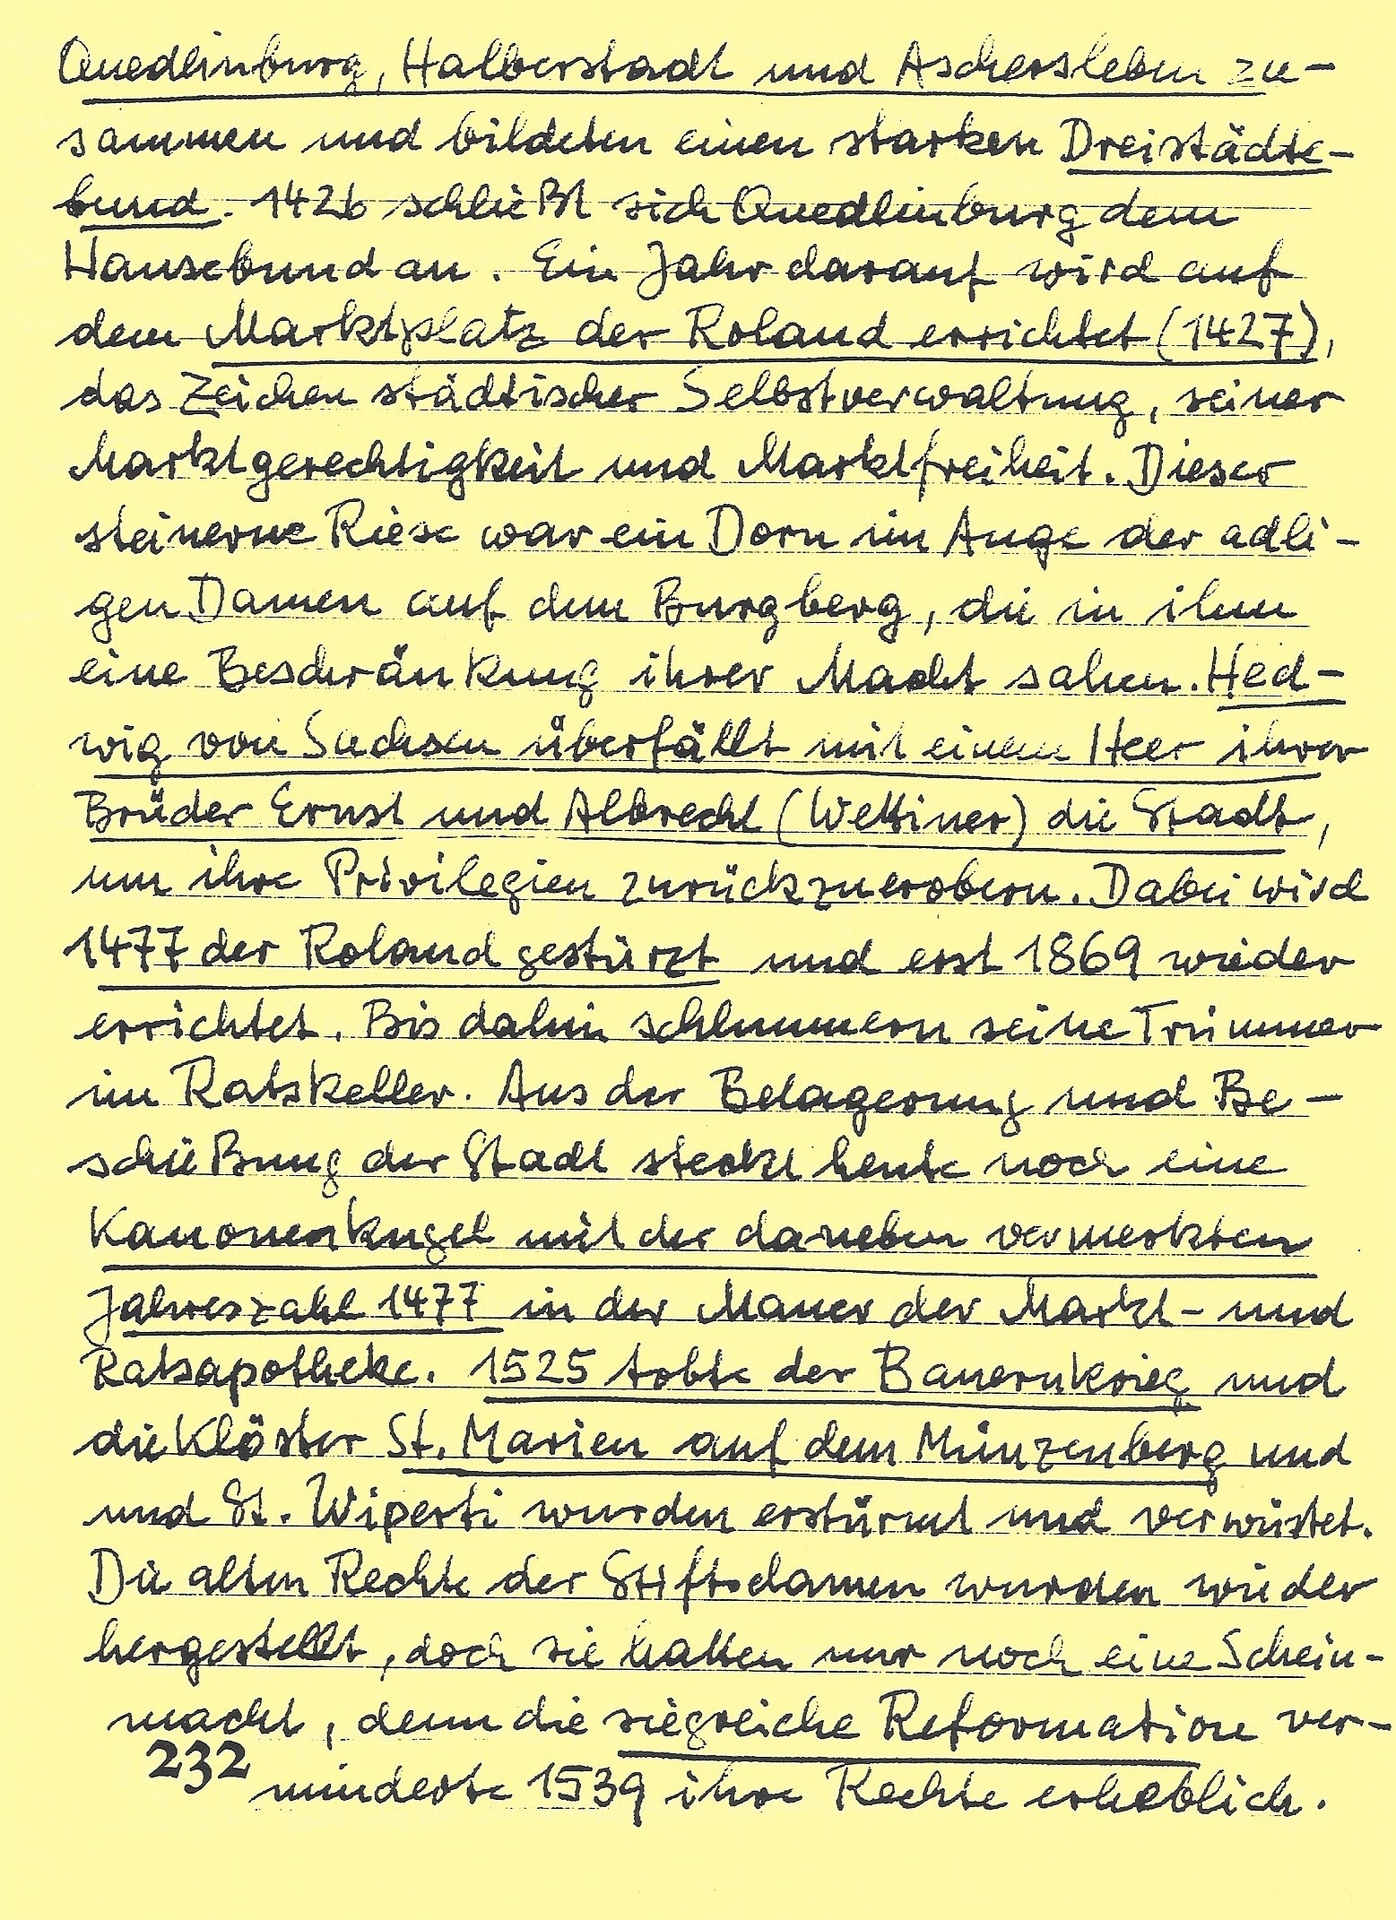 Quedlinburg, Halberstadt und Aschersleben zu-
sammen und bildeten einen starken Dreistädte-
bund. 1426 schließt sich Quedlinburg dem
Hansebund an. Ein Jahr darauf wird auf
dem Marktplatz der Roland errichtet (1427),
das Zeichen städtischer Selbstverwaltung, seiner
Marktgerechtigkeit und Marktfreiheit. Dieser
steinerne Riese war ein Dorn im Auge der adli-
gen Damen auf dem Burgberg, die in ihm
eine Beschränkung ihrer Macht sahen. Hed-
wig von Sachsen überfällt mit einem Heer ihrer
Brüder Ernst und Albrecht (Wettiner) die Stadt,
um ihre Privilegien zurückzuerobern. Dabei wird
1477 der Roland gestürzt und erst 1869 wieder
errichtet. Bis dahin schlummern seine Trümmer
im Ratskeller. Aus der Belagerung und Be-
schießung der Stadt steckt heute noch eine
Kanonenkugel mit der daneben vermerkten
Jahreszahl 1477 in der Mauer der Markt- und
Ratsapotheke. 1525 tobte der Bauernkrieg und
die Klöster St. Marien auf dem Münzenberg und
und St. Wiperti wurden erstürmt und verwüstet.
Die alten Rechte der Stiftsdamen wurden wieder
hergestellt, doch sie hatten nur noch eine Schein-
macht, denn die siegreiche Reformation ver-
232 minderte 1539 ihre Rechte erheblich.